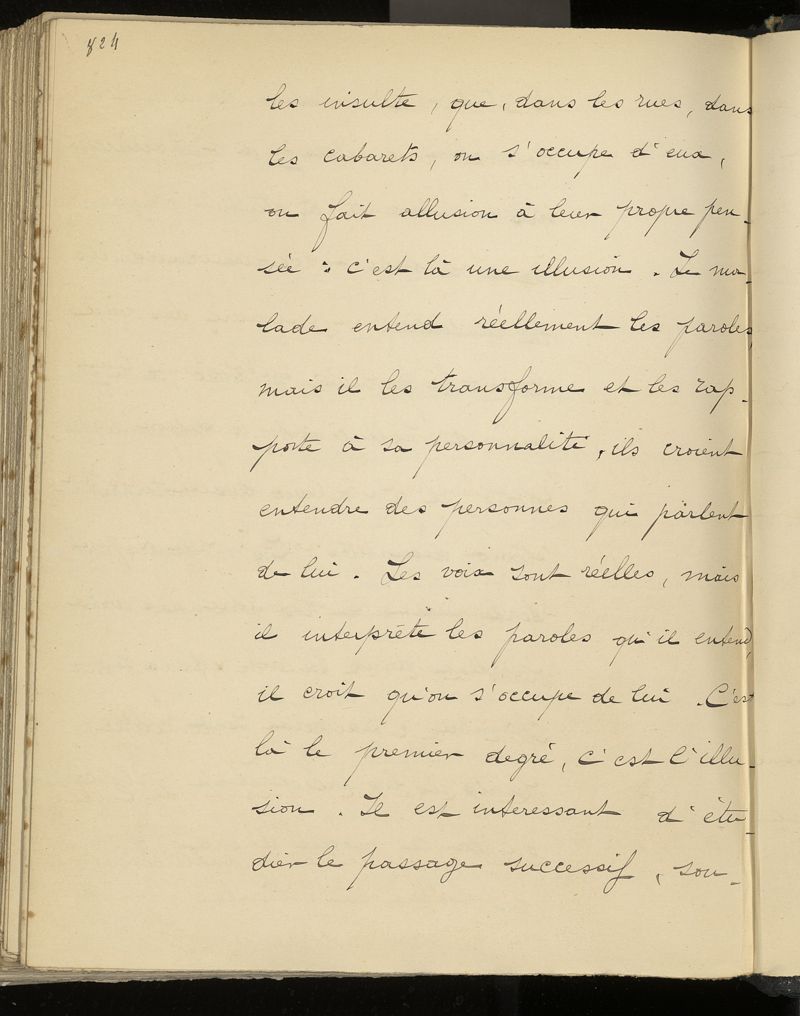 824
les insulte, que, dans les rues, dans
les cabarets, on s'occupe d'eux,
on fait allusion à leur propre pen-
sée : c'est là une illusion. Le ma-
lade entend réellement les paroles,
mais il les transforme et les rap-
porte à sa personnalité, ils croient
entendre des personnes qui parlent
de lui. Les voix sont réelles, mais
il interprète les paroles qu'il entend,
il croit qu'on s'occupe de lui. C'est
là le premier degré, c'est l'illu-
sion. Il est interessant d'étu-
dier le passage successif, sou-